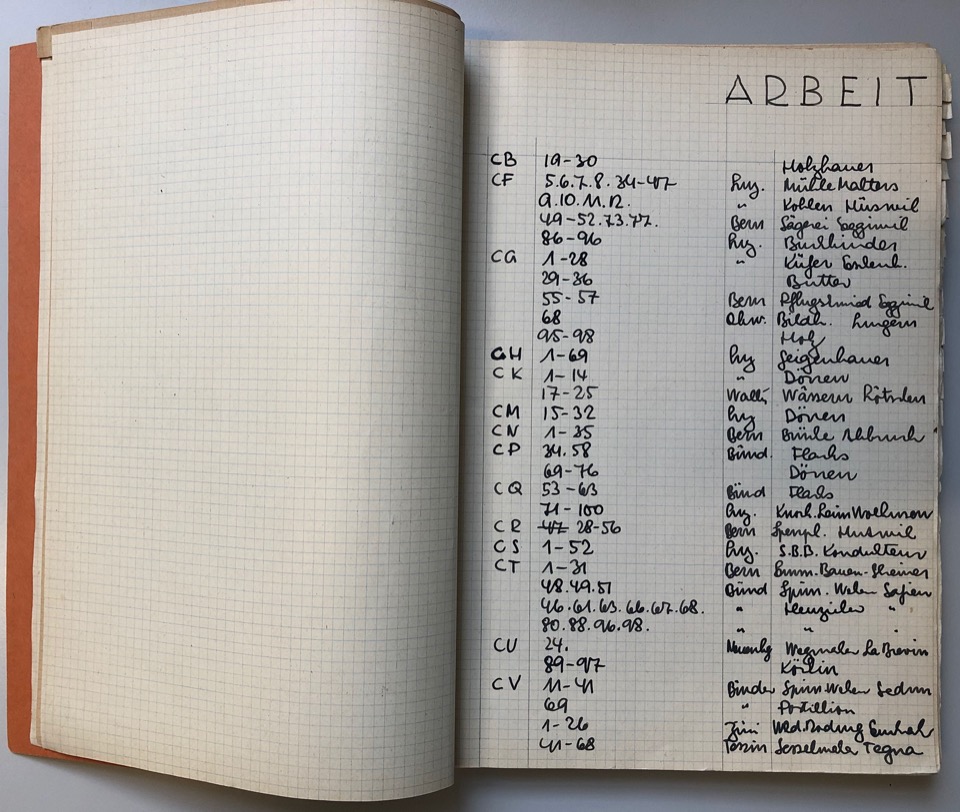 ARBEIT
CB 19-30 Holzhauer
CF 5.6.7.8. 34-47 Luz. Mühle Malters
9.10.11.12. " Kohlen Hüswil
49-52.73.77. Bern Sägerei Eggiwil
86-96 Luz. Buchbinder
CG 1-28 " Küfer
29-36 Butter
55-57 Bern Pflugschmid Eggiwil
68 Obw. Bildh. Lungern
95-98 Holz
CH 1-69 Luz Geigenbauer
CK 1-14 " Dörren
17-25 Wallis Wässern
CM 15-32 Luz Dörren
CN 1-35 Bern
CP 34.58 Bünd. Flachs
69-76 Dörren
CQ 53-63 Bünd Flachs
71-100 Luz. Knoch.Leim Wolhusen
CR 47 28-56 Bern Spengl. Hutwil
CS 1-52 Luz. S.B.B. Kondukteur
CT 1-31 Bern
48.49.51 Bünd Spinn. Weben Safien
46.61.63.66.67.68. " Heuzieher "
80.88.96.98. " " "
CU 24. Neuenbg Wegmaler La Brévin
89-97
CV 11-41 Bünden Spinn.Weben Sedrun
69 " Postillion
1-26
41-68 Tessin Sesselmaler Tegna